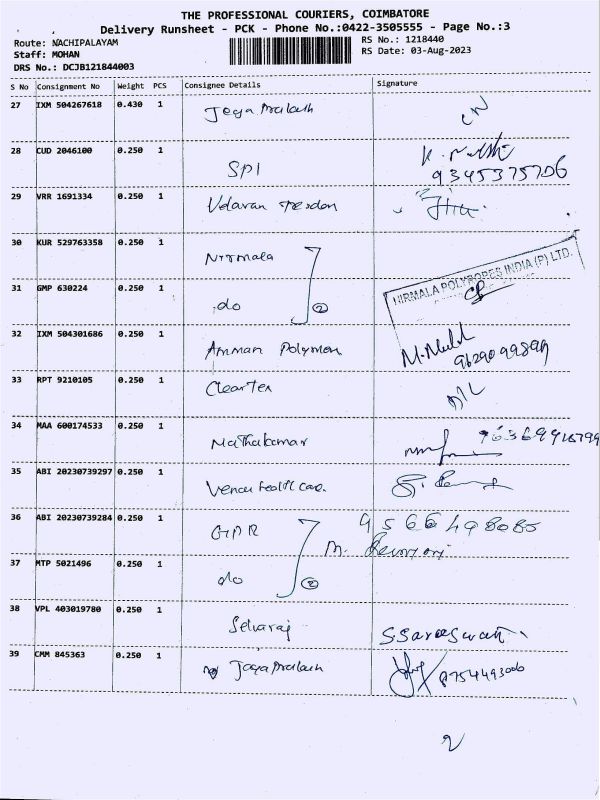 THE PROFESSIONAL COURIERS, COIMBATORE
Delivery Runsheet - PCK - Phone No.:0422-3505555 - Page No.:3
Route: NACHIPALAYAM RS No.: 1218440
Staff: MOHAN RS Date: 03-Aug-2023
DRS No.: DCJB121844003
S No Consignment No Weight PCS Consignee Details Signature
27 IXM 504267618 0.430 1 Jeya Prakash
28 CUD 2046100 0.250 1 SPI 9345375706
29 VRR 1691334 0.250 1 Velavan
30 KUR 529763358 0.250 1 Nirmala
NIRMALA POLYROPES INDIA (P) LTD.
31 GMP 630224 0.250 1 do 2
32 IXM 504301686 0.250 1 Amman Polymer
33 RPT 9210105 0.250 1 Cleartex
34 MAA 600174533 0.250 1
35 ABI 20230739297 0.250 1
36 ABI 20230739284 0.250 1 9566498085
37 MTP 5021496 0.250 1 do 2
38 VPL 403019780 0.250 1 Selvaraj
39 CMM 845363 0.250 1 Jaya Prakash
2